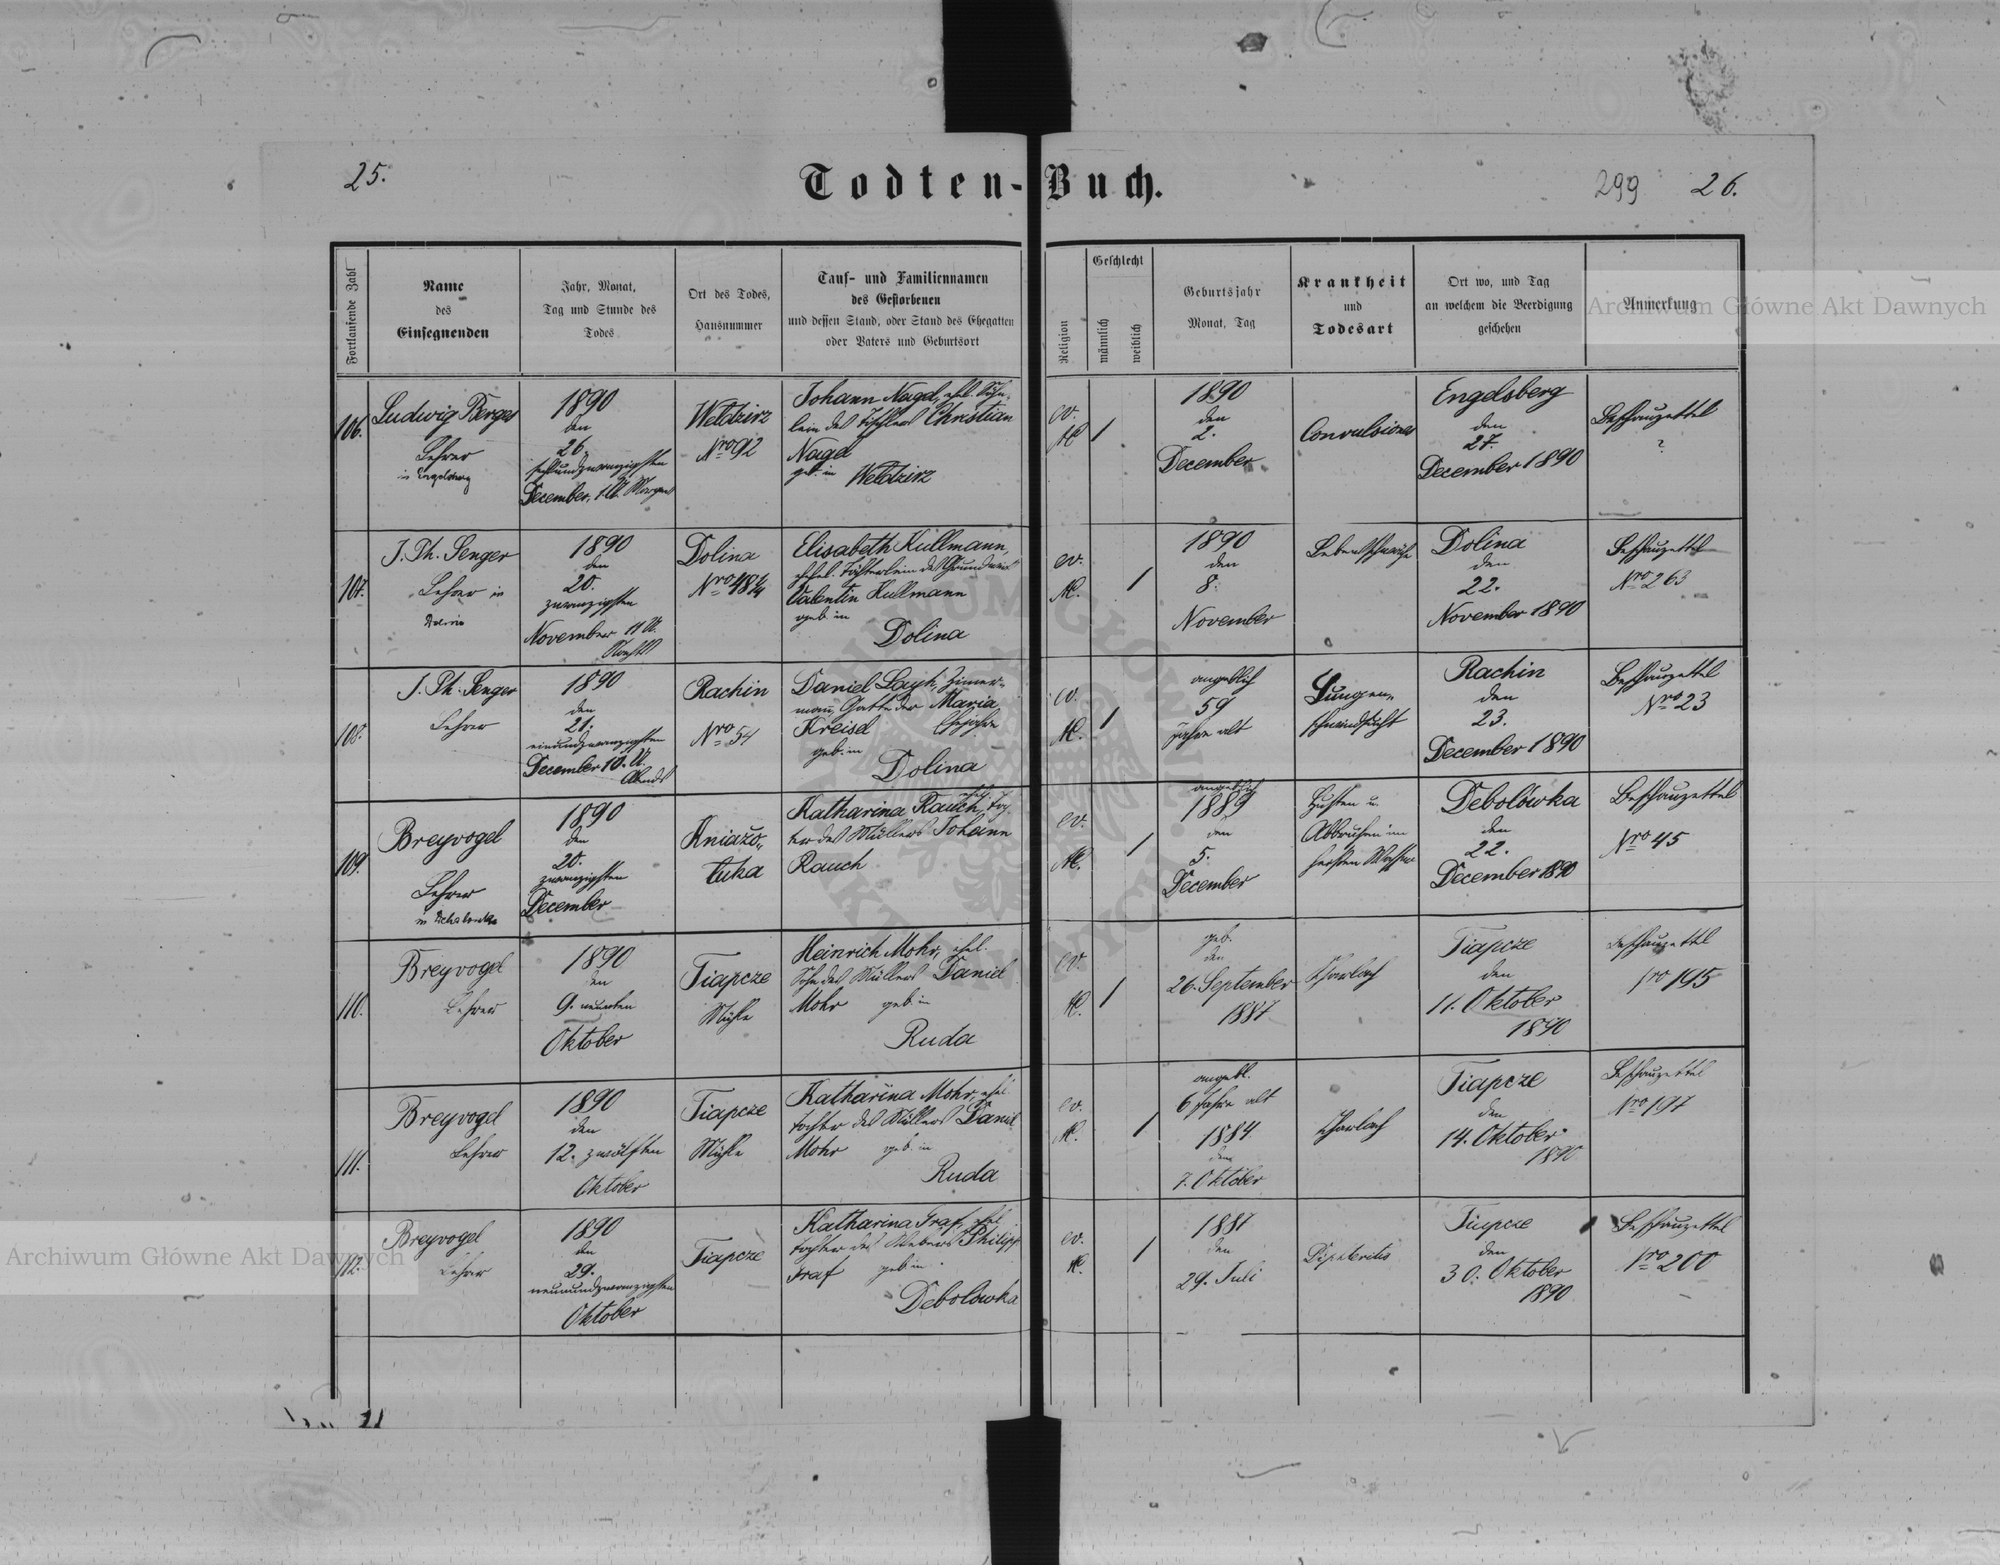 25.
Todten-Buch.
299
26.
Fortlaufende Zahl
Name
des
Einsegnenden
Jahr, Monat,
Tag und Stunde des
Todes
Ort des Todes,
Hausnummer
Tauf- und Familiennamen
des Gestorbenen
und dessen Stand, oder Stand des Ehegatten
oder Vaters und Geburtsort
Religion
Geschlecht
männlich
weiblich
Geburtsjahr
Monat, Tag
Krankheit
und
Todesart
Ort wo, und Tag
an welchem die Beerdigung
geschehen
Anmerkung
Archiwum Główne Akt Dawnych
106.
Ludwig Berger
Lehrer
in Engelsberg
1890
den
26.
sechsundzwanzigsten
December, 1 U. Morgens
Weldzirz
Nro 92
Johann Nagel, ehl. Söhn-
lein des Tischlers Christian
Nagel
geb. in Weldzirz
ev.
AC
1
1890
den
2.
December
Convulsionen
Engelsberg
den
27.
December 1890
Beschauzettel
?
107.
J. Ph. Senger
Lehrer in
Dolina
1890
den
20.
zwanzigsten
November 11 U.
Nachts
Dolina
Nro 484
Elisabeth Kullmann,
ehel. Töchterlein des Grundwirts
Valentin Kullmann
geb. in
Dolina
ev.
AC.
1
1890
den
8.
November
Lebensschwäche
Dolina
den
22.
November 1890
Beschauzettel
Nro 263
108.
J. Ph. Senger
Lehrer
1890
den
21.
einundzwanzigsten
December 10. U.
Abends
Rachin
Nro 54
Daniel Layh, Zimmer-
mann, Gatte der Maria
Kreisel
geb. in
Dolina
ev.
AC.
1
angeblich
59
Jahre alt
Lungen-
schwindsucht
Rachin
den
23.
December 1890
Beschauzettel
Nro 23
109.
Breyvogel
Lehrer
in Debolowka
1890
den
20.
zwanzigsten
December
Kniażo-
łuka
Katharina Rauch, ehel. Toch-
ter des Müllers Johann
Rauch
ev.
AC.
1
angeblich
1889
den
5.
December
Husten u.
Debolówka
den
22.
December 1890
Beschauzettel
Nro 45
110.
Breyvogel
Lehrer
1890
den
9. neunten
Oktober
Tiapcze
Mühle
Heinrich Mohr, ehel.
Sohn des Müllers Daniel
Mohr geb. in
Ruda
ev.
AC.
1
geb.
den
26. September
1887
Scharlach
Tiapcze
den
11. Oktober
1890
Beschauzettel
Nro 195
111.
Breyvogel
Lehrer
1890
den
12. zwölften
Oktober
Tiapcze
Mühle
Katharina Mohr, ehel.
Tochter des Müllers Daniel
Mohr geb. in
Ruda
ev.
AC.
1
angebl.
6 Jahre alt
1884
den
7. Oktober
Scharlach
Tiapcze
den
14. Oktober
1890
Beschauzettel
Nro 197
112.
Breyvogel
Lehrer
1890
den
29.
neunundzwanzigsten
Oktober
Tiapcze
Katharina Graf, ehel.
Tochter des Webers Philipp
Graf geb. in
Debolowka
ev.
AC.
1
1887
den
29. Juli
Tiapcze
den
30. Oktober
1890
Beschauzettel
Nro 200
Archiwum Główne Akt Dawnych